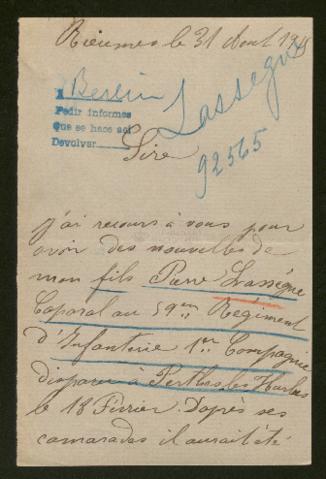 Rieumes le 31 Août 1915
Berlin
Lassègue
Pedir informes
que se hace así
Devolver
Sire
92565
j'ai recours à vous pour
avoir des nouvelles de
mon fils Pierre Lassègue
Caporal au 59me Régiment
d'Infanterie 1re Compagnie
disparu à Perthes les Hurlus
le 18 Février. D'après ses
camarades il aurait été